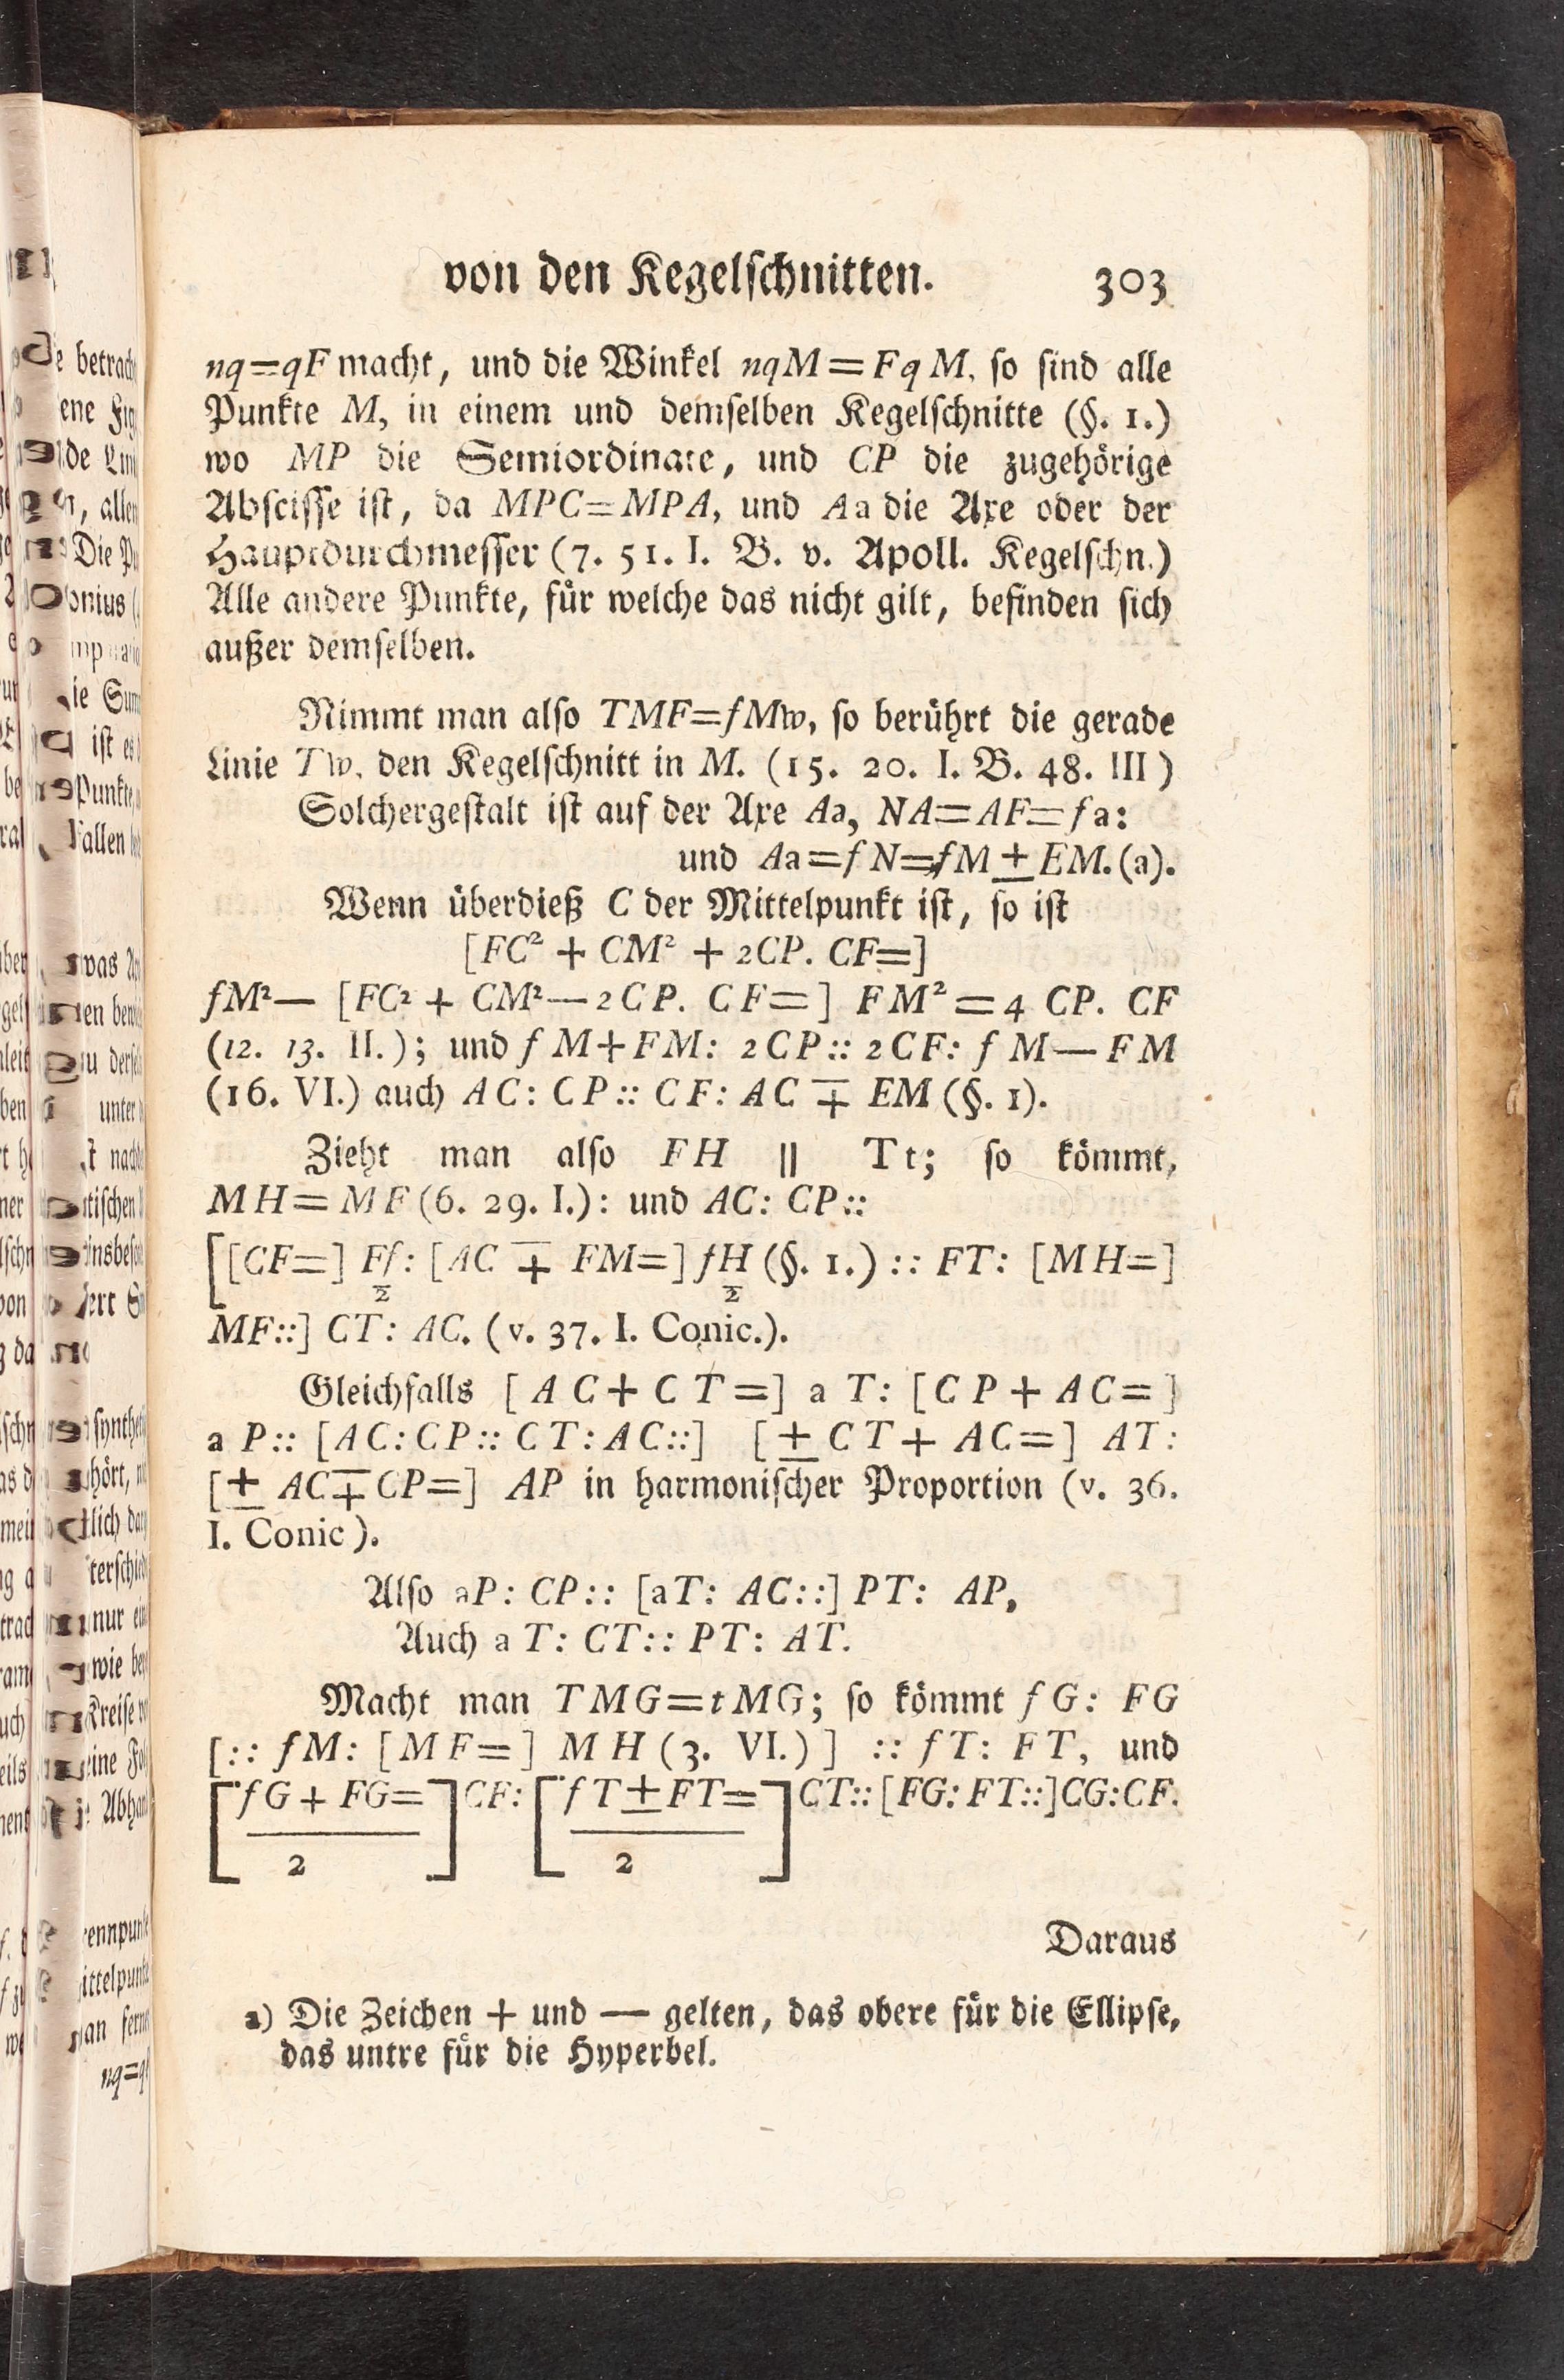 von den Kegelſchnitten. 303
nq=qF macht, und die Winkel nqM=FqM, ſo ſind alle
Punkte M, in einem und demſelben Kegelſchnitte (§. 1.)
wo MP die Semiordinate, und CP die zugehörige
Abſciſſe iſt, da MPC=MPA, und Aa die Axe oder der
Hauptdurchmeſſer (7. 51. I. B. v. Apoll. Kegelſchn.)
Alle andere Punkte, für welche das nicht gilt, befinden ſich
außer demſelben.
Nimmt man alſo TMF=fMw, ſo berührt die gerade
Linie Tw, den Kegelſchnitt in M. (15. 20. I. B. 48. III)
Solchergeſtalt iſt auf der Axe Aa, NA=AF=fa:
und Aa=fN=fM±EM.(a).
Wenn überdieß C der Mittelpunkt iſt, ſo iſt
[FC² + CM² + 2CP. CF=]
fM²— [FC² + CM²—2CP. CF=] FM²=4 CP. CF
(12. 13. II.); und fM+FM: 2CP:: 2CF: fM—FM
(16. VI.) auch AC: CP:: CF: AC ∓ EM (§. 1).
Zieht man alſo FH || Tt; ſo kömmt,
MH=MF (6. 29. I.): und AC: CP::
[[CF=] Ff/2: [AC ∓ FM=] fH/2 (§. 1.) :: FT: [MH=]
MF::] CT: AC. (v. 37. I. Conic.).
Gleichfalls [AC+CT=] aT: [CP+AC=]
aP:: [AC:CP::CT:AC::] [±CT+AC=] AT:
[± AC∓CP=] AP in harmoniſcher Proportion (v. 36.
I. Conic).
Alſo aP: CP:: [aT: AC::] PT: AP,
Auch aT: CT:: PT: AT.
Macht man TMG=tMG; ſo kömmt fG: FG
[:: fM: [MF=] MH (3. VI.)] :: fT: FT, und
[fG+FG=/2] CF: [fT±FT=/2] CT::[FG:FT::]CG:CF.
Daraus
a) Die Zeichen + und — gelten, das obere für die Ellipſe,
das untre für die Hyperbel.